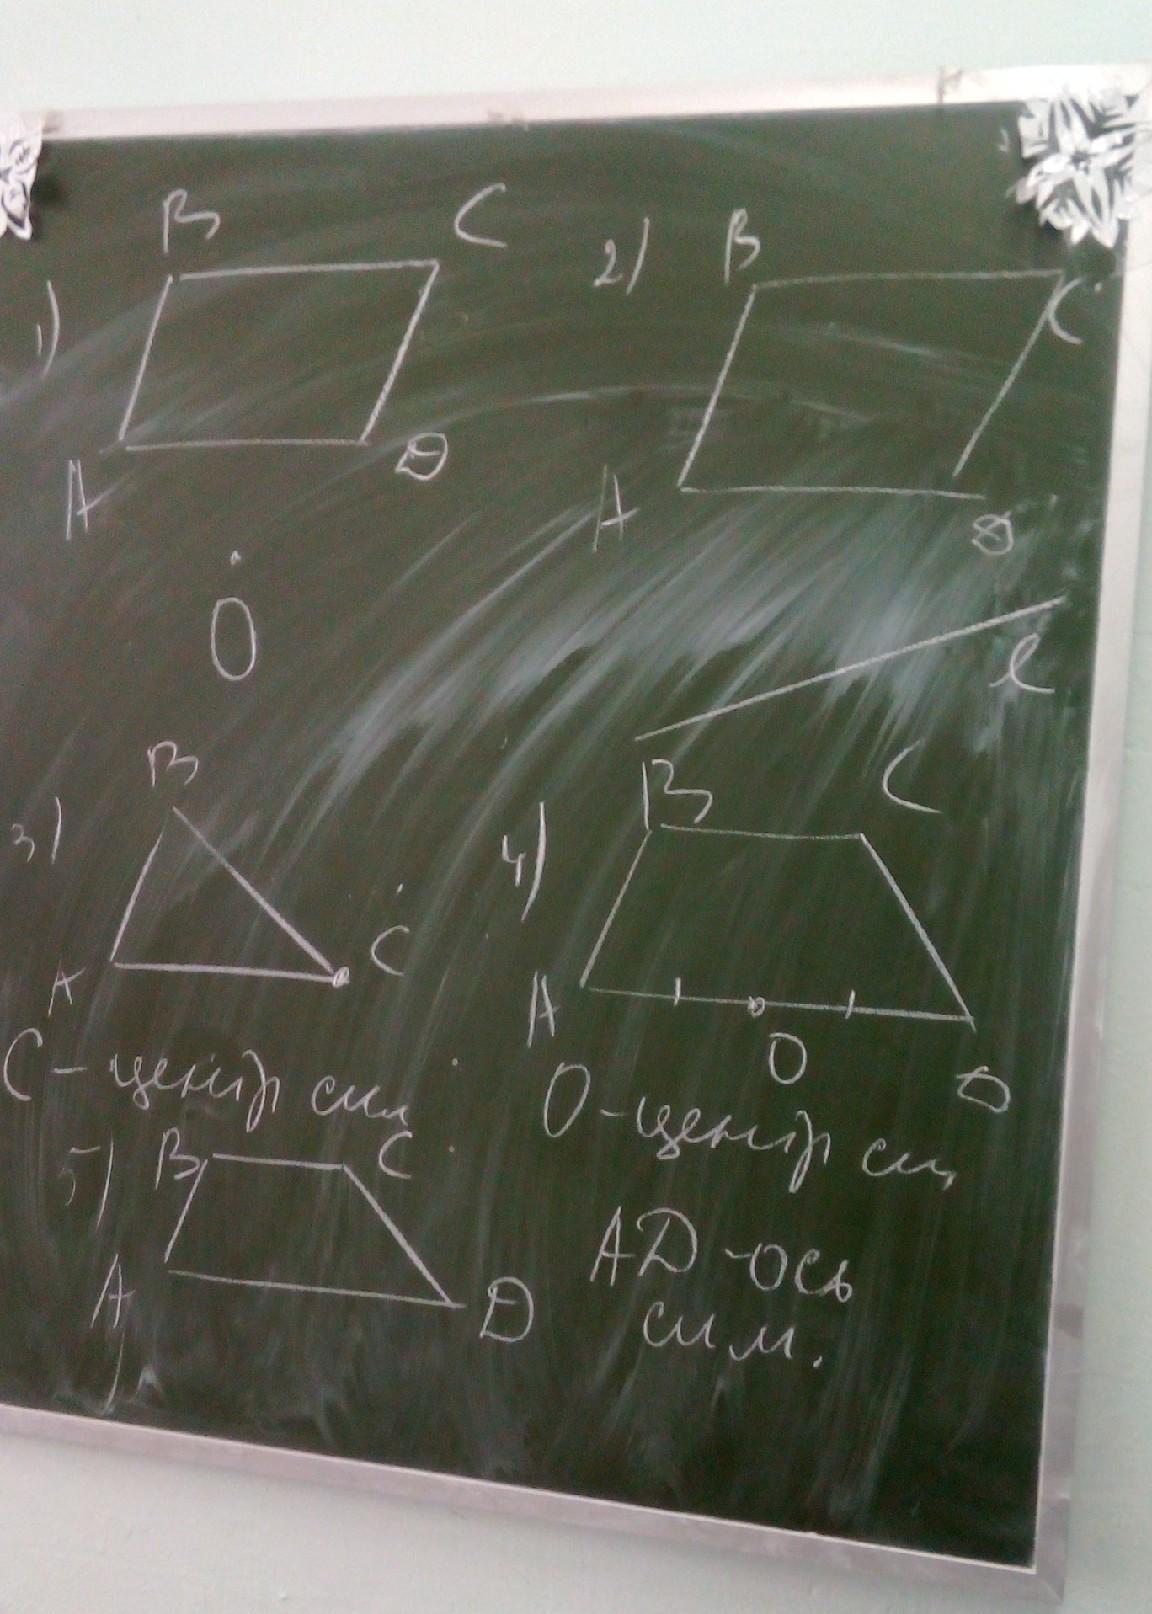 1)
B C
A D
O
2)
B C
A D
l
3)
B
A C
C - центр сим
4)
B C
A O D
O - центр сим
5)
B C
A D
AD - ось
сим.